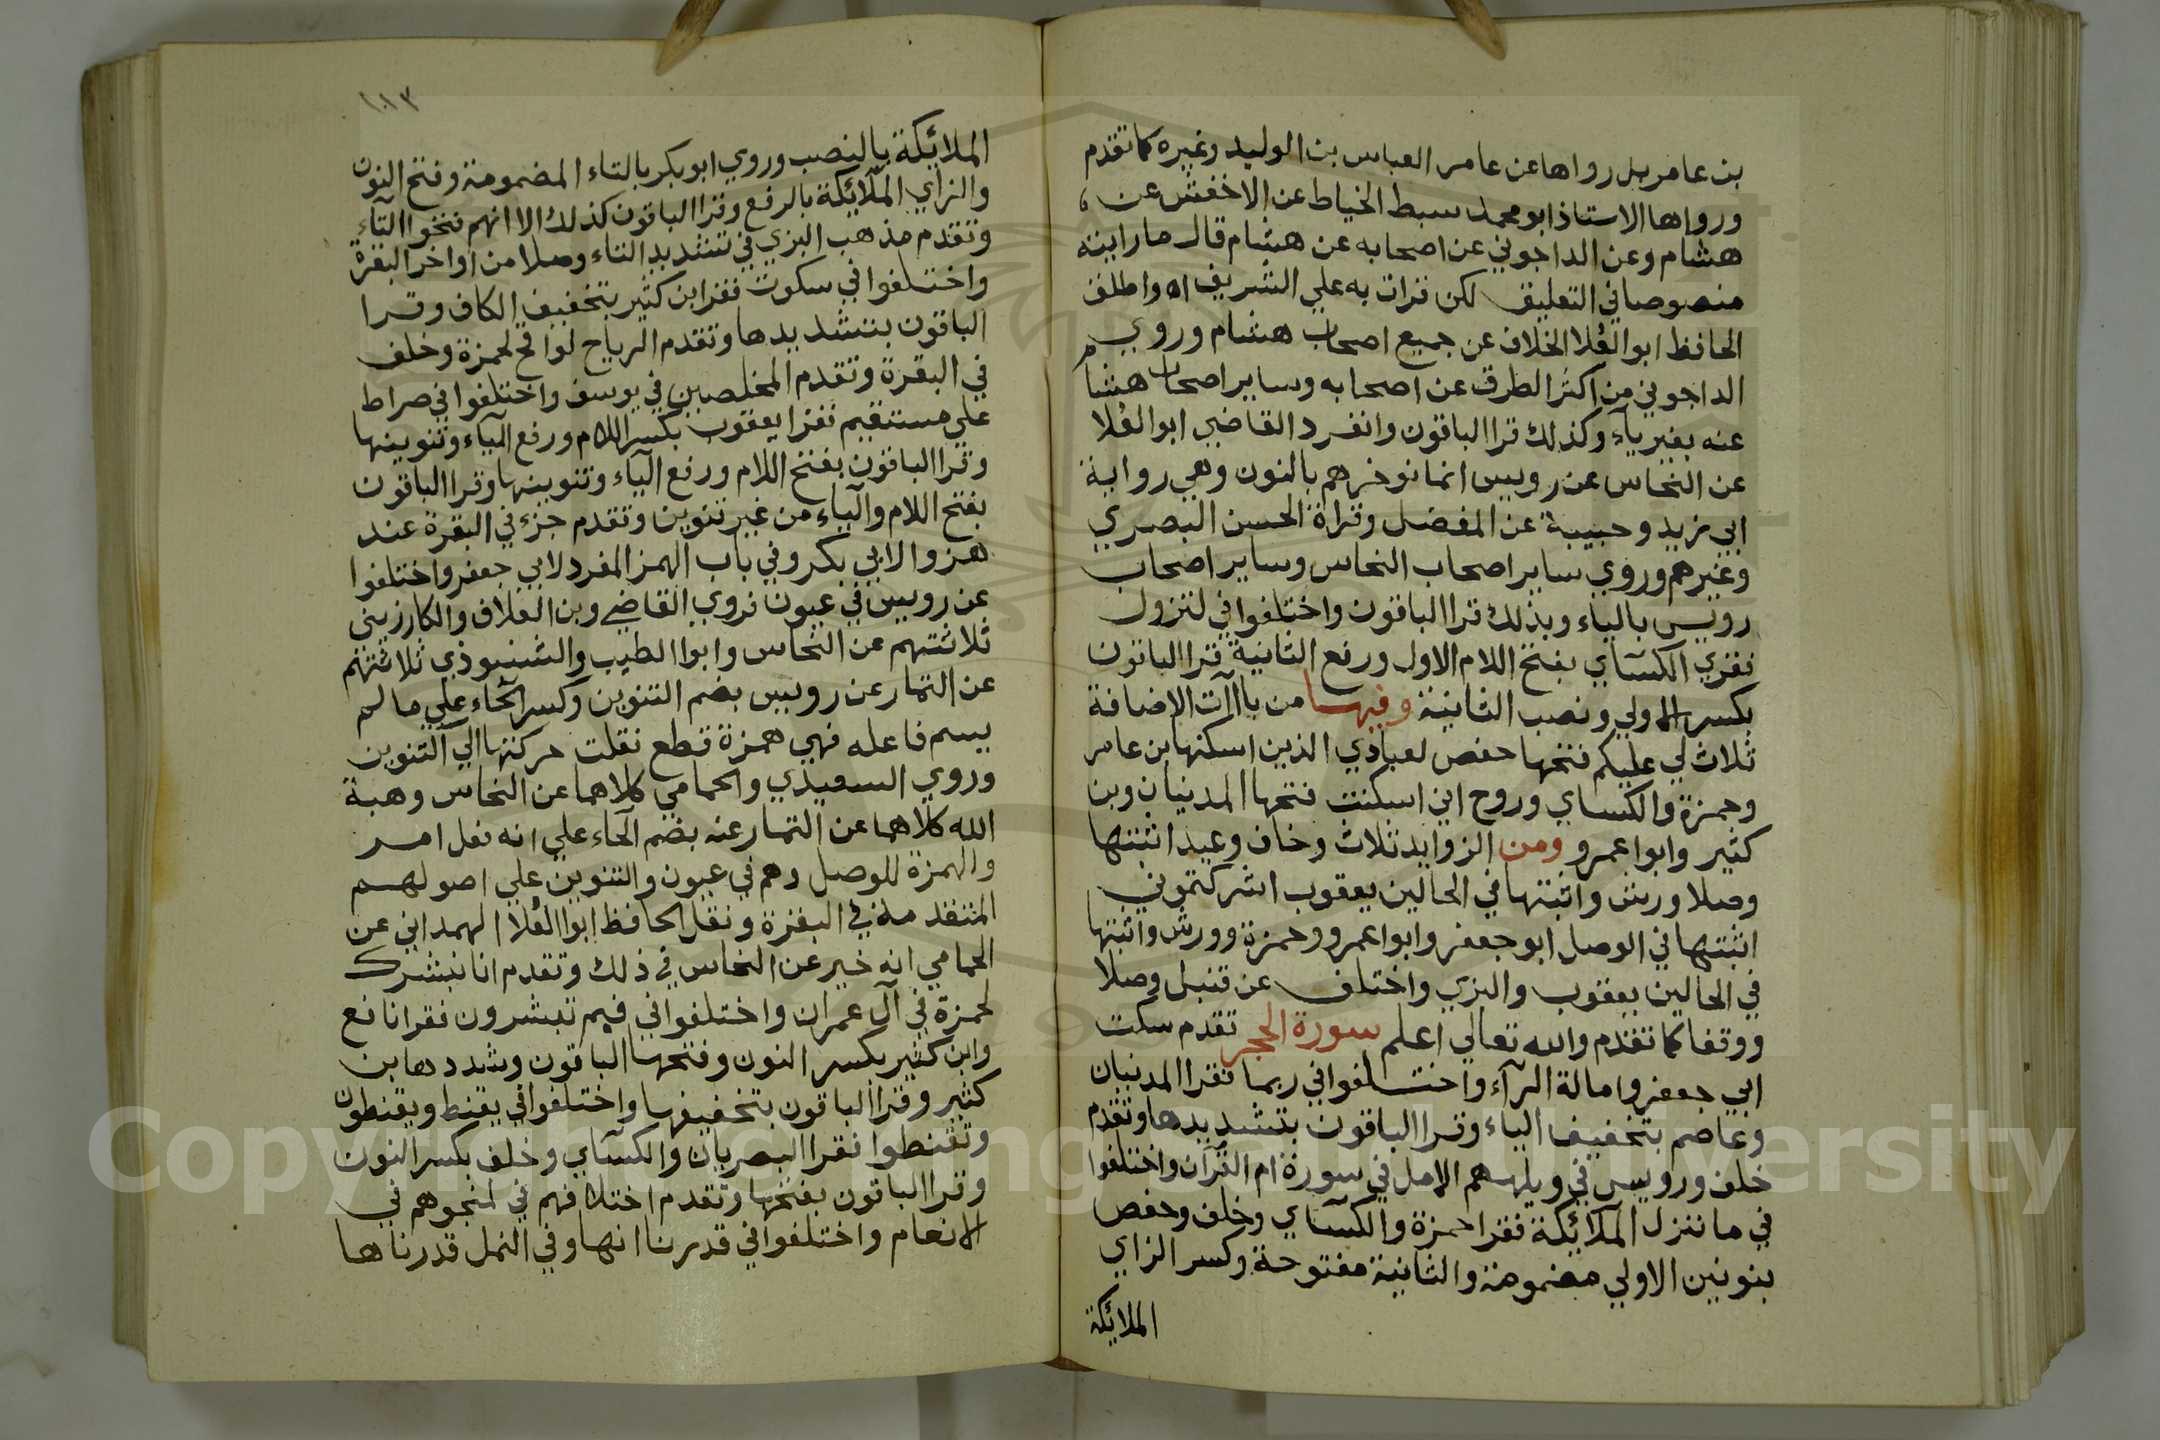 بن عامر بل رواها عن عامر العباس بن الوليد وغيره كما تقدم
ورواها الاستاذ ابو محمد سبط الخياط عن الاخفش عن
هشام وعن الداجوني عن اصحابه عن هشام قال ما رايته
منصوصا في التعليق لكن قرات به علي الشريف اه واطلق
الحافظ ابوا العلا الخلاف عن جميع اصحاب هشام وروي
الداجوني من اكثر الطرق عن اصحابه وساير اصحاب هشام
عنه بغير يآء وكذلك قرا الباقون وانفرد القاضي ابوا العلا
عن النخاس عن رويس انما نوخرهم بالنون وهي رواية
ابي زيد وحبيبة عن المفضل وقراة الحسن البصري
وغيرهم وروي ساير اصحاب النخاس وساير اصحاب
رويس بالياء وبذلك قرا الباقون واختلفوا في لتزول
فقري الكسآي بفتح اللام الاول ورفع الثانية قرا الباقون
بكسر الاولي ونصب الثانية وفيها من ياآت الاضافة
ثلاث لي عليكم فتحها حفص لعبادي الذين اسكنها بن عامر
وحمزة والكساي وروح اني اسكنت فتحها المدنيان وبن
كثير وابوا عمرو ومن الزوايد ثلاث وخاف وعيد اثبتها
وصلا ورش واثبتها في الحالين يعقوب اشركتموني
اثبتها في الوصل ابو جعفر وابوا عمرو وحمزة وورش واثبتها
في الحالين يعقوب والبزي واختلف عن قنبل وصلا
ووقفا كما تقدم والله تعالي اعلم سورة الحجر تقدم سكت
ابي جعفر وامالة الرآء واختلفوا في ربما فقرا المدنيان
وعاصم بتخفيف الباء وقرا الباقون بتشديدها وتقدم
خلف ورويس في ويلههم الامل في سورة ام القرآن واختلفوا
في ما ننزل الملائكة فقرا حمزة والكسآي وخلف وحفص
بنونين الاولي مضمومة والثانية مفتوحة وكسر الزاي
الملائكة
١٨٣
الملائكة بالنصب وروي ابو بكر بالتاء المضمومة وفتح النون
والزاي الملآئكة بالرفع وقرا الباقون كذلك الا انهم فتحوا التآء
وتقدم مذهب البزي في تشديد التاء وصلا من اواخر البقرة
واختلفوا في سكرت فقرا بن كثير بتخفيف الكاف وقرا
الباقون بتشديدها وتقدم الرياح لواقح لحمزة وخلف
في البقرة وتقدم المخلصين في يوسف واختلفوا في صراط
علي مستقيم فقرا يعقوب بكسر اللام ورفع اليآء وتنوينها
وقرا الباقون بفتح اللام ورفع اليآء وتنوينها وقرا الباقون
بفتح اللام والياء من غير تنوين وتقدم جزء في البقرة عند
هزوا لابي بكر وفي باب الهمز المفرد لابي جعفر واختلفوا
عن رويس في عيون فروي القاضي وبن العلاف والكارزيني
ثلاثتهم عن النخاس وابوا الطيب والشنبوذي ثلاثتهم
عن التمار عن رويس بضم التنوين وكسر الخاء علي ما لم
يسم فاعله فهي همزة قطع نقلت حركتها الي التنوين
وروي السعيدي والحمامي كلاهما عن النخاس وهبة
الله كلاهما عن التمار عنه بضم الخاء علي انه فعل امر
والهمزة للوصل وهم في عيون والتنوين علي اصولهم
المتقدمة في البقرة ونقل الحافظ ابوا العلا الهمداني عن
الحمامي انه خير عن النخاس في ذلك وتقدم انا نبشرك
لحمزة في آل عمران واختلفوا في فبم تبشرون فقرا نافع
وابن كثير بكسر النون وفتحها الباقون وشددها بن
كثير وقرا الباقون بتخفيفها واختلفوا في يقنط ويقنطون
وتقنطوا فقرا البصريان والكسآي وخلف بكسر النون
وقرا الباقون بفتحها وتقدم اختلافهم في لمنجوهم في
الانعام واختلفوا في قدرنا انها وفي النمل قدرناها